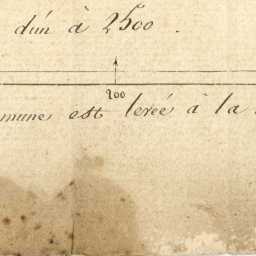 d'un à 2500.
900
mmune est levée à la